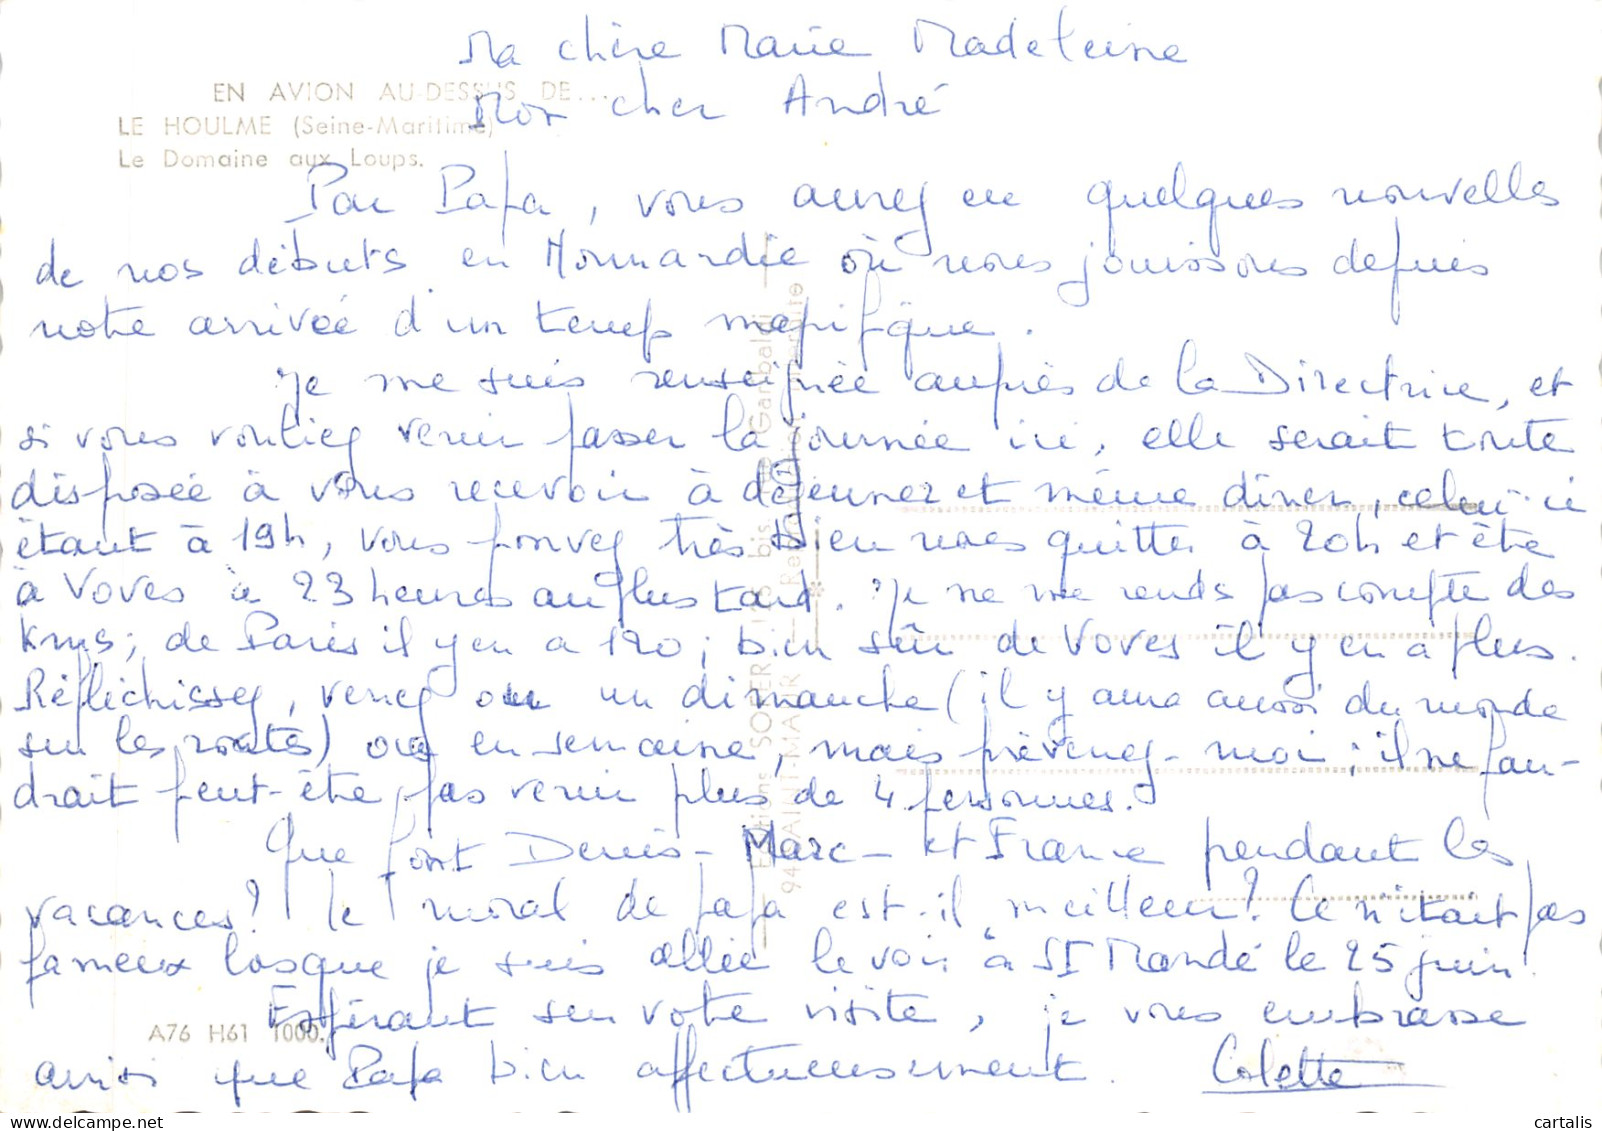 Ma chère Marie Madeleine
EN AVION AU-DESSUS DE...
Mon cher André
LE HOULME (Seine-Maritime)
Le Domaine aux Loups.
Par Papa, vous aurez eu quelques nouvelles
de nos débuts en Normandie où nous jouissons depuis
notre arrivée d'un temps magnifique.
Je me suis renseignée auprès de la Directrice, et
si vous vouliez venir passer la journée ici, elle serait toute
disposée à vous recevoir à déjeuner et même dîner, celui-ci
étant à 19h, vous pouvez très bien nous quitter à 20h et être
à Voves à 23 heures au plus tard. Je ne me rends pas compte des
Kms ; de Paris il y en a 120 ; bien sûr de Voves il y en a plus.
Réfléchissez, venez ou un dimanche (il y aura aussi du monde
sur les routes) ou en semaine, mais prévenez-moi ; il ne fau-
drait peut-être pas venir plus de 4 personnes.
Que font Denis - Marc - et France pendant les
vacances ? Le moral de papa est-il meilleur ? Ce n'était pas
fameux lorsque je suis allée le voir à St Mandé le 25 juin.
Espérant sur votre visite, je vous embrasse
A76 H61 1000.
ainsi que Papa bien affectueusement. Colette
Editions SOFER
bis
Garibaldi
94
SAINT-MAUR
cartalis
www.delcampe.net